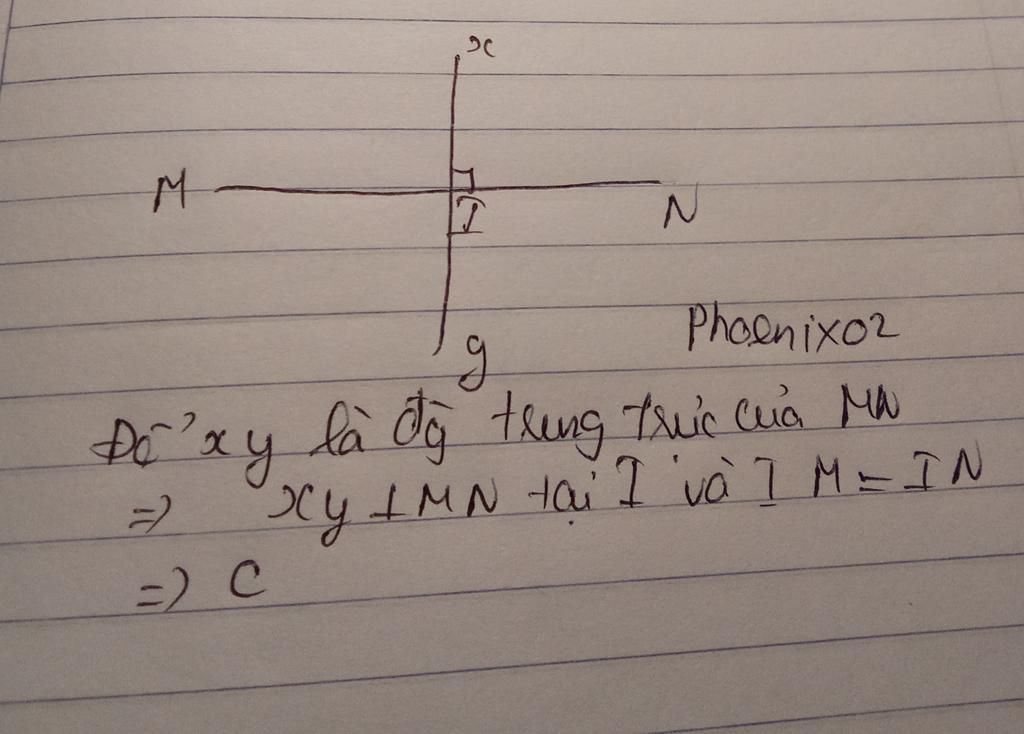 x
M
N
I
y
Phoenix02
Để xy là đg trung trực của MN
=> xy ⊥ MN tại I và IM = IN
=> C